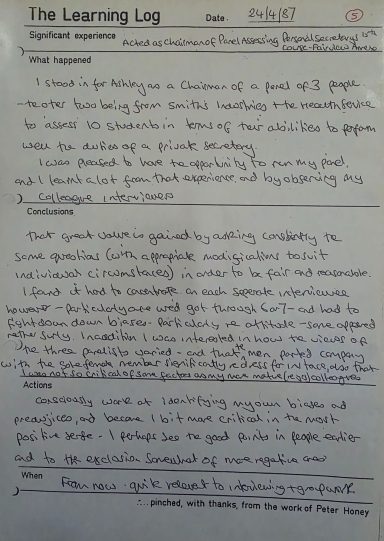 The Learning Log
Date. 24/4/87
5
Significant experience Acted as Chairman of Panel Assessing Personal Secretary's
Course - Fairlawn Annexe
What happened
I stood in for Ashley as a Chairman of a panel of 3 people
- the oter two being from Smiths Industries + the Health Service
to assess 10 students in terms of their abilities to perform
well the duties of a private secretary.
I was pleased to have the opportunity to run my panel,
and I learnt a lot from that experience, and by observing my
) Colleague Interviewers
Conclusions
That great value is gained by asking constantly the
same questions (with appropriate modifications to suit
individual circumstances) in order to be fair and reasonable.
I found it hard to concentrate on each seperate interviewee
however - particularly once we'd got through 6 or 7 - and had to
fight down down biases - particularly re attitude - some appeared
rather surly. In addition I was interested in how the views of
the three panelists varied - and that men parted company
with the sole female member significantly re dress for instance, also that
I was not so critical of some factors as my more mature colleagues
Actions
Consciously work at identifying my own biases and
and become 1 bit more critical in the most
positive sense - I perhaps see the good points in people earlier
and to the exclusion somewhat of more negative ones
When
) From now - quite relevant to interviewing + group work
∴. pinched, with thanks, from the work of Peter Honey